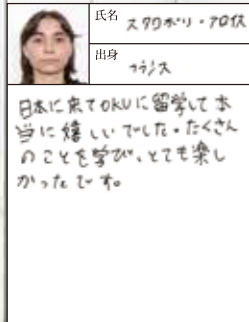 氏名 スタウボリ・アロイス
出身 フランス
日本に来てOKUに留学して本
当に嬉しいでした。たくさん
のことを学び、とても楽し
かったです。